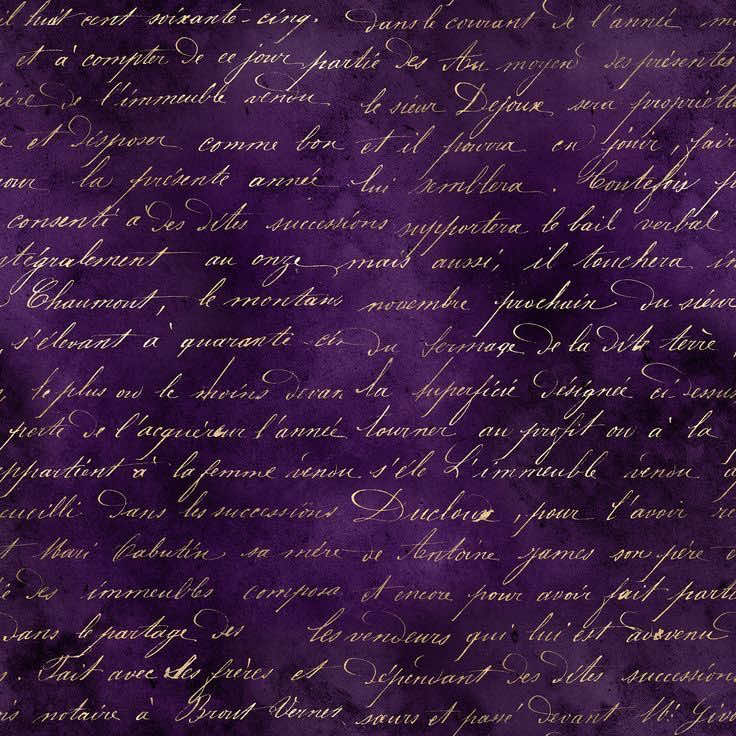 il huit cent soixante-cinq. dans le courant de l'année
et à compter de ce jour partie des Au moyen des présentes
de l'immeuble vendu le sieur Dejoux sera
et disposer comme bon et il pourra en jouir, fair
pour la présente année lui semblera. Toutefois
consenti à des dites successions supportera le bail verbal
ntégralement au onze mais aussi, il touchera in
Chaumont, le montans novembre prochain du sieur
s'élevant à quarante-cin du fermage de la dite terre,
le plus ou le moins devan la superficie désignée ci dessus
perte de l'acquéreur l'année tourner au profit ou à la
appartient à la femme vendu s'éle L'immeuble vendu
cueilli dans les successions Ducloux, pour l'avoir
Mari Cabutin sa mère de Antoine james son père
des immeubles composa et encore pour avoir fait parti
dans le partage des les vendeurs qui lui est advenu
Fait avec les frères et dépendant des dites succession
notaire à Brout Vernet sœurs et passé devant Mr